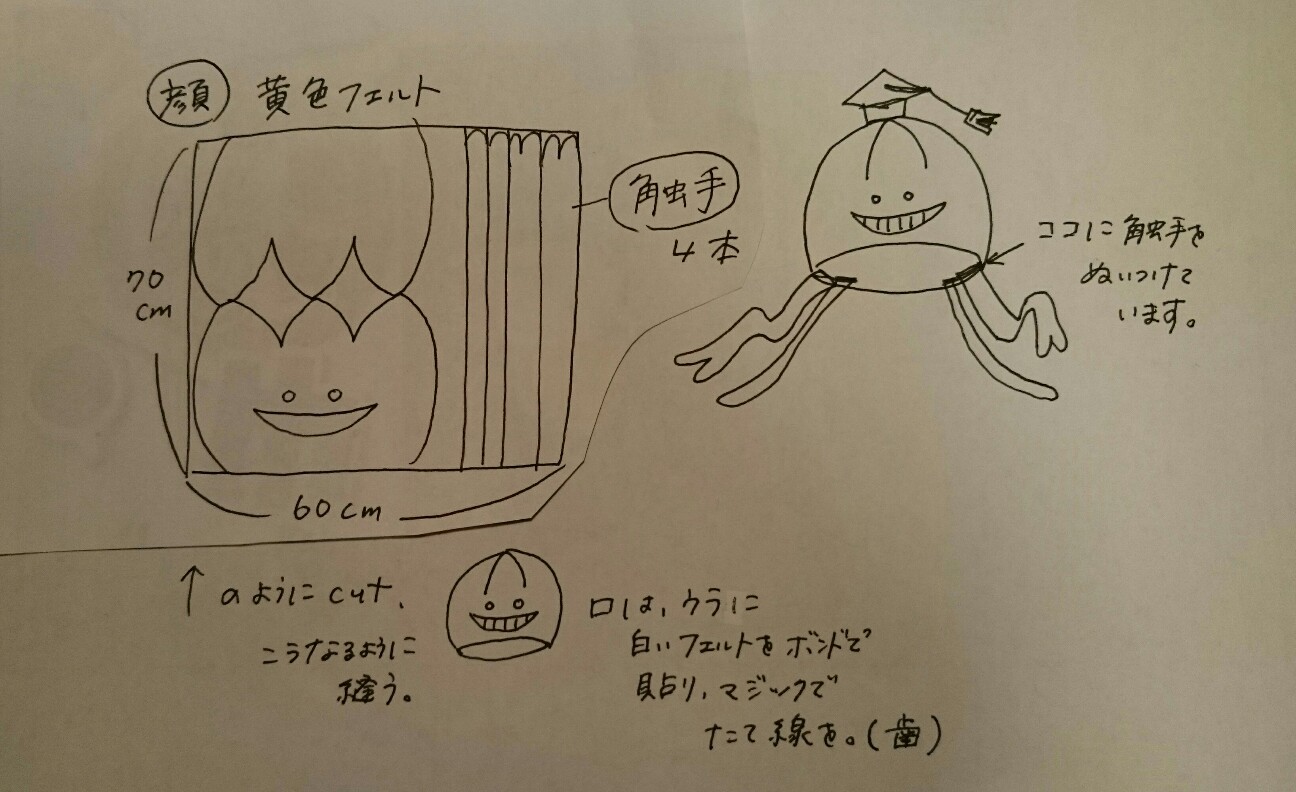 顔 黄色フェルト
触手
4本
70
cm
60cm
ココに触手を
ぬいつけて
います。
↑のようにcut.
こうなるように
縫う。
口は、ウラに
白いフェルトをボンドで
貼り、マジックで
たて線を。(歯)